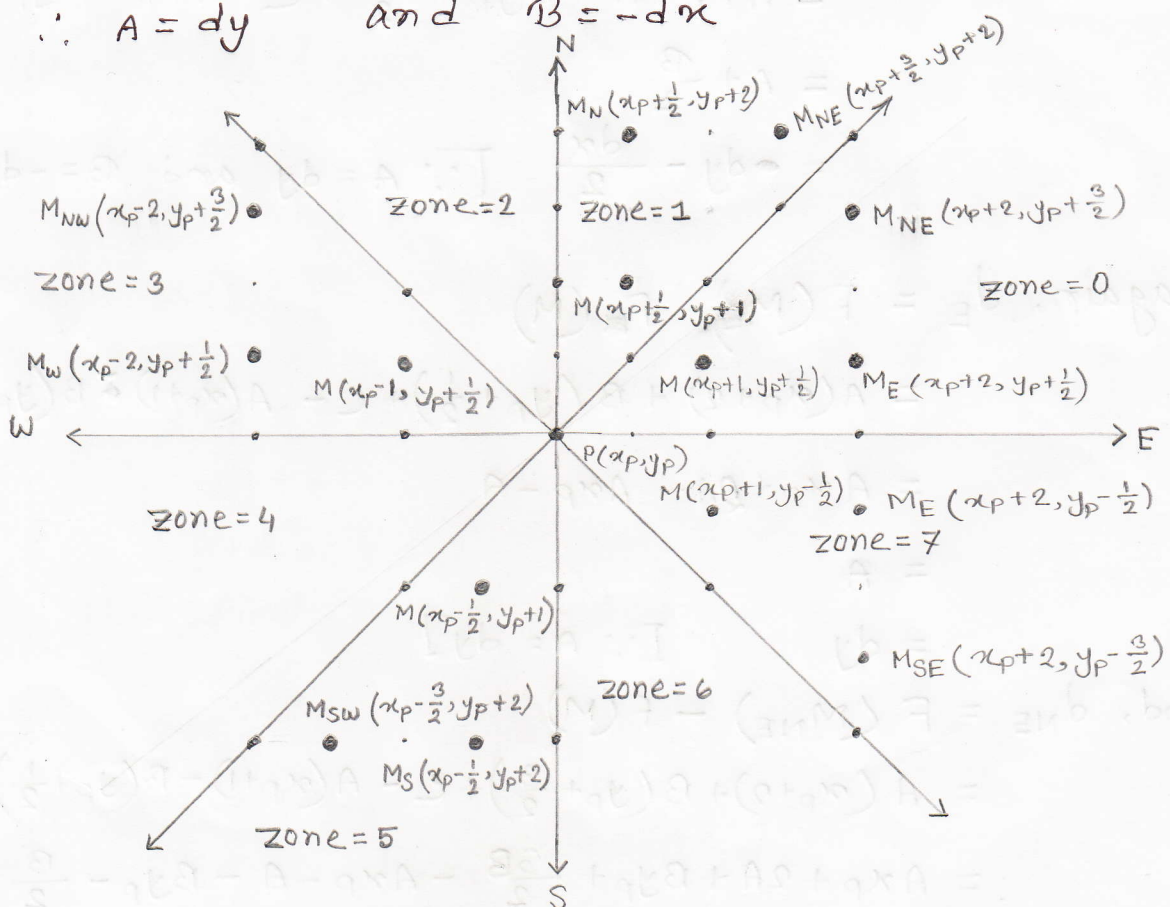 ∴ A = dy and B = -dx
N
M_N (x_p+1/2, y_p+2)
M_NE (x_p+3/2, y_p+2)
M_NW (x_p-2, y_p+3/2)
zone=2
zone=1
M_NE (x_p+2, y_p+3/2)
zone=3
zone=0
M(x_p+1/2, y_p+1)
M_W (x_p-2, y_p+1/2)
M(x_p-1, y_p+1/2)
M(x_p+1, y_p+1/2)
M_E (x_p+2, y_p+1/2)
W
E
P(x_p, y_p)
M(x_p+1, y_p-1/2)
M_E (x_p+2, y_p-1/2)
zone=4
zone=7
M(x_p-1/2, y_p+1)
M_SE (x_p+2, y_p-3/2)
zone=6
M_SW (x_p-3/2, y_p+2)
M_S (x_p-1/2, y_p+2)
zone=5
S